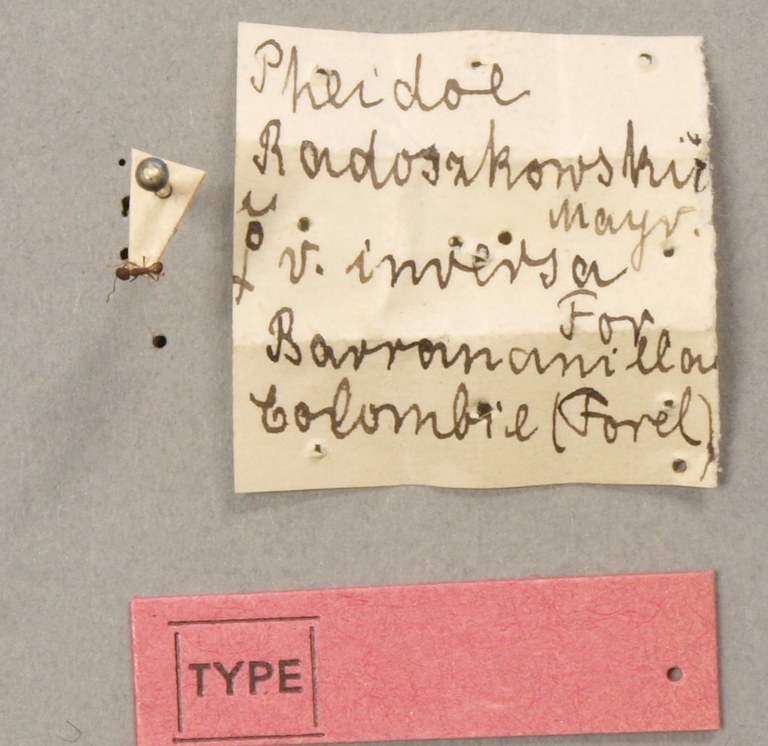 Pheidole
Radoszkowskii
Mayr.
☿ v. inversa
For
Barrananilla
Colombie (Forel)
TYPE